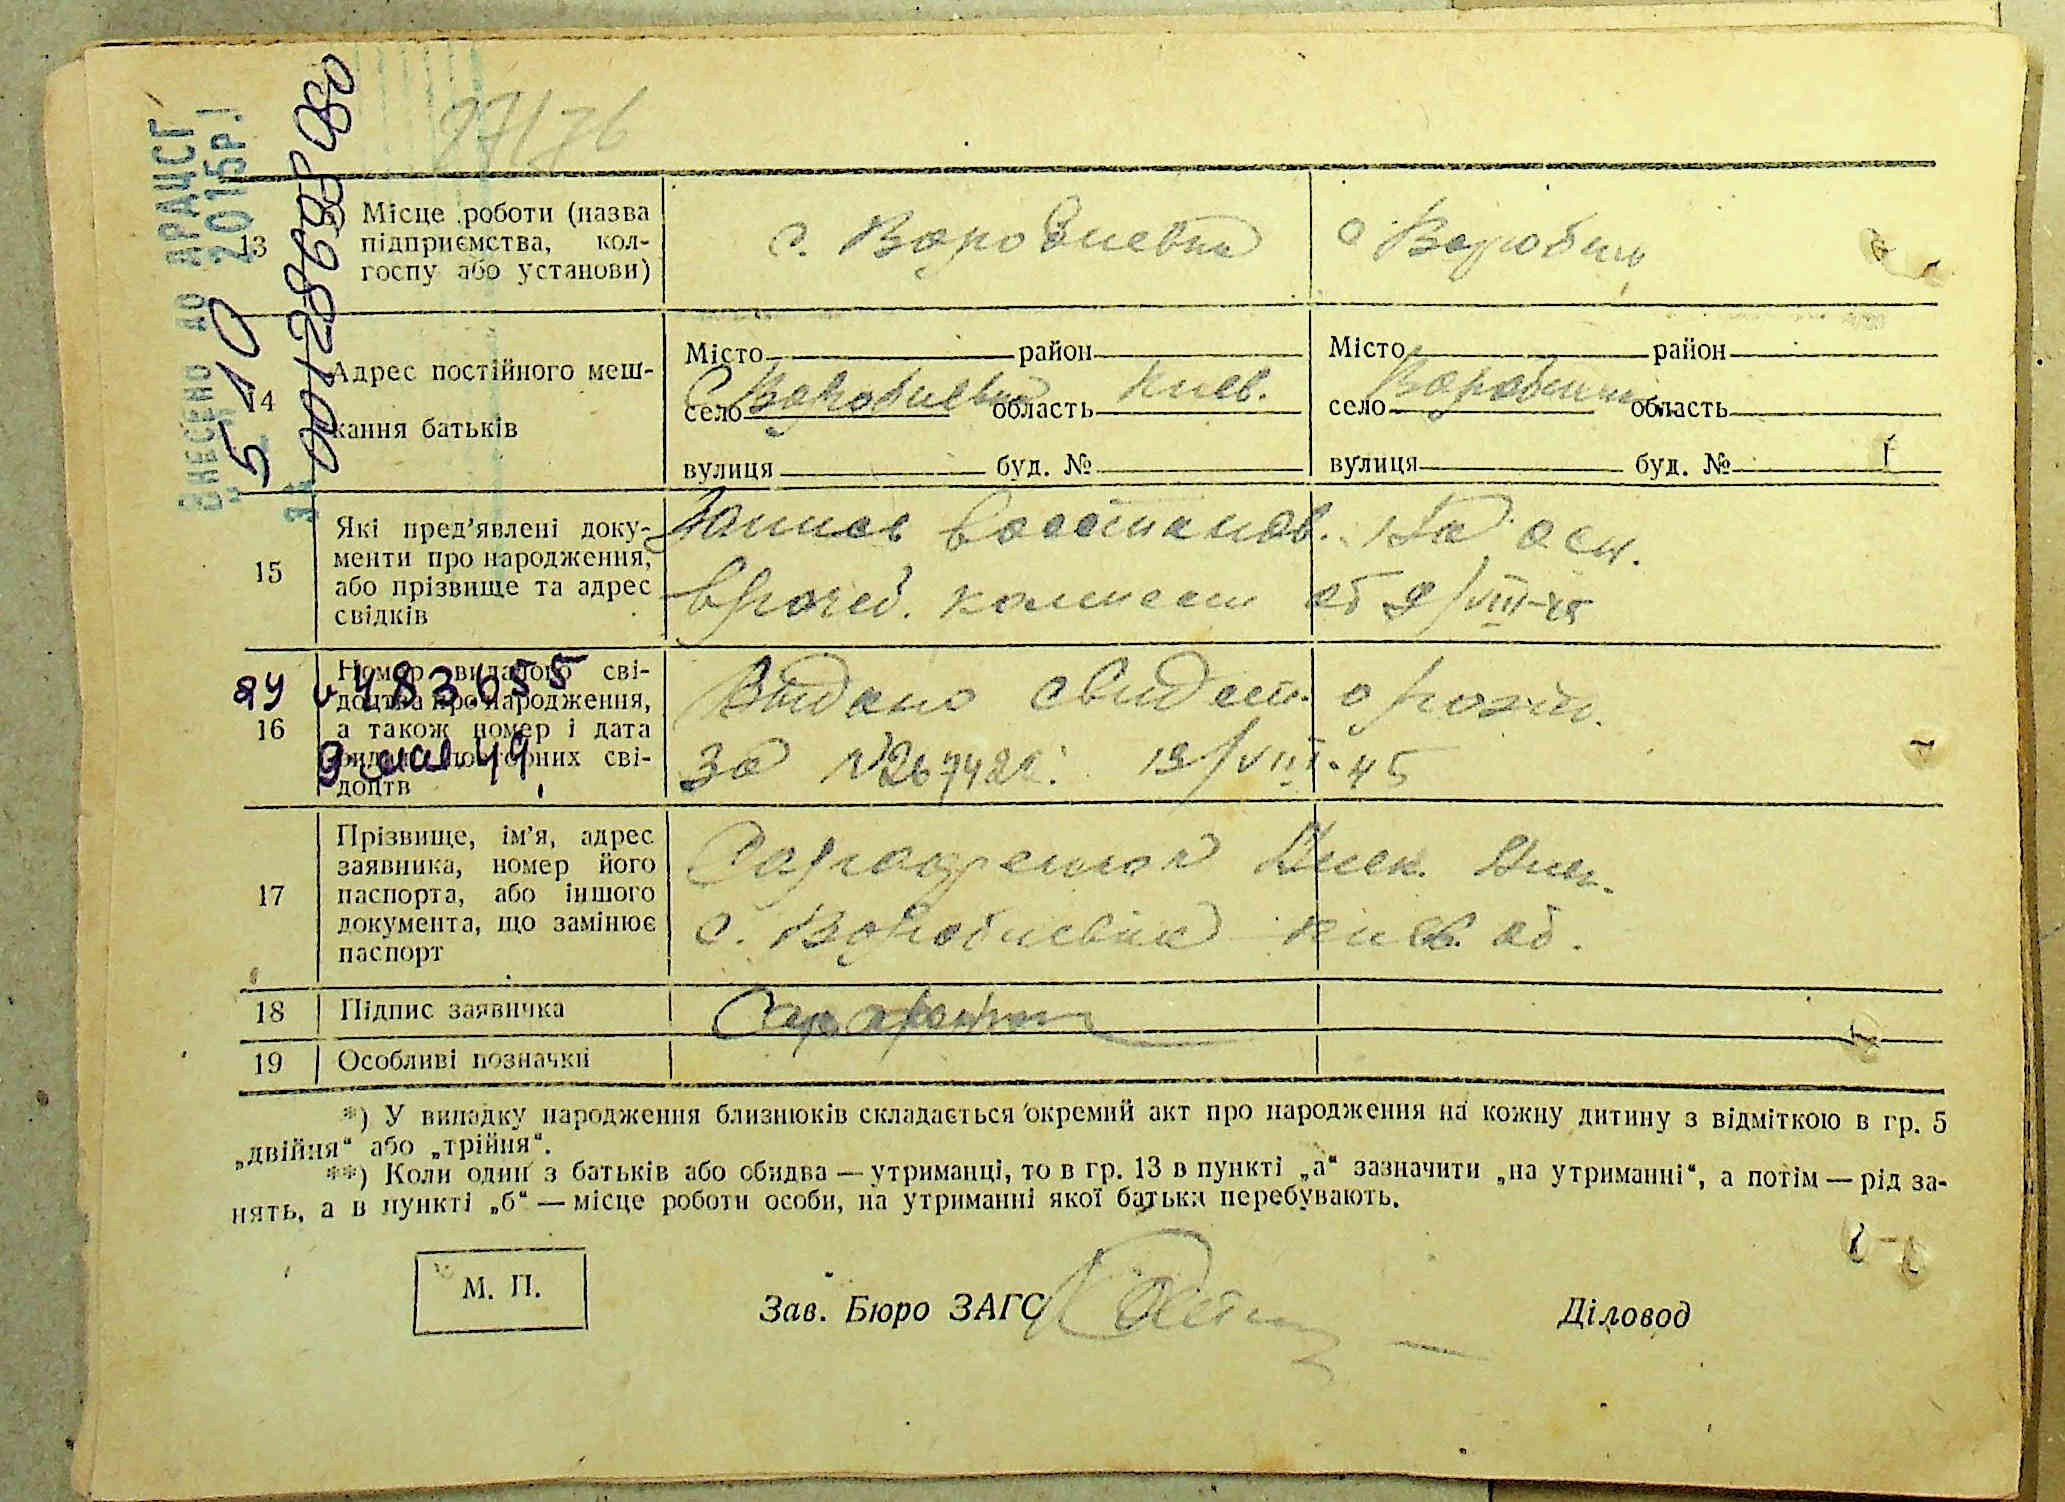 27/76
ВНЕСЕНО ДО ДРАЦСГ
5 10 2015р.
за 00128698080
13 Місце роботи (назва підприємства, кол-
госпу або установи)
с. Воробиевка
с Воробии
14 Адрес постійного меш-
кання батьків
Місто район
село Воробиевка область Киев.
вулиця буд. №
Місто район
село область
вулиця буд. №
15 Які пред'явлені доку-
менти про народження,
або прізвище та адрес
свідків
Запись восстанов. На осн.
врачеб. комисси от 9/VIII-45
16 Номер виданого сві-
доцтва про народження,
а також номер і дата
видачі повторних сві-
доцтв
ЯУ № 483655
9 мая 49
Выдано свидет. о рожд.
за №267422. 13/VIII-45
17 Прізвище, ім'я, адрес
заявника, номер його
паспорта, або іншого
документа, що замінює
паспорт
с. Воробиевка Киев. об.
18 Підпис заявника
19 Особливі позначки
*) У випадку народження близнюків складається окремий акт про народження на кожну дитину з відміткою в гр. 5
„двійня“ або „трійня“.
**) Коли один з батьків або обидва — утриманці, то в гр. 13 в пункті „а“ зазначити „на утриманні“, а потім — рід за-
нять, а в пункті „б“ — місце роботи особи, на утриманні якої батьки перебувають.
М. П.
Зав. Бюро ЗАГС
Діловод